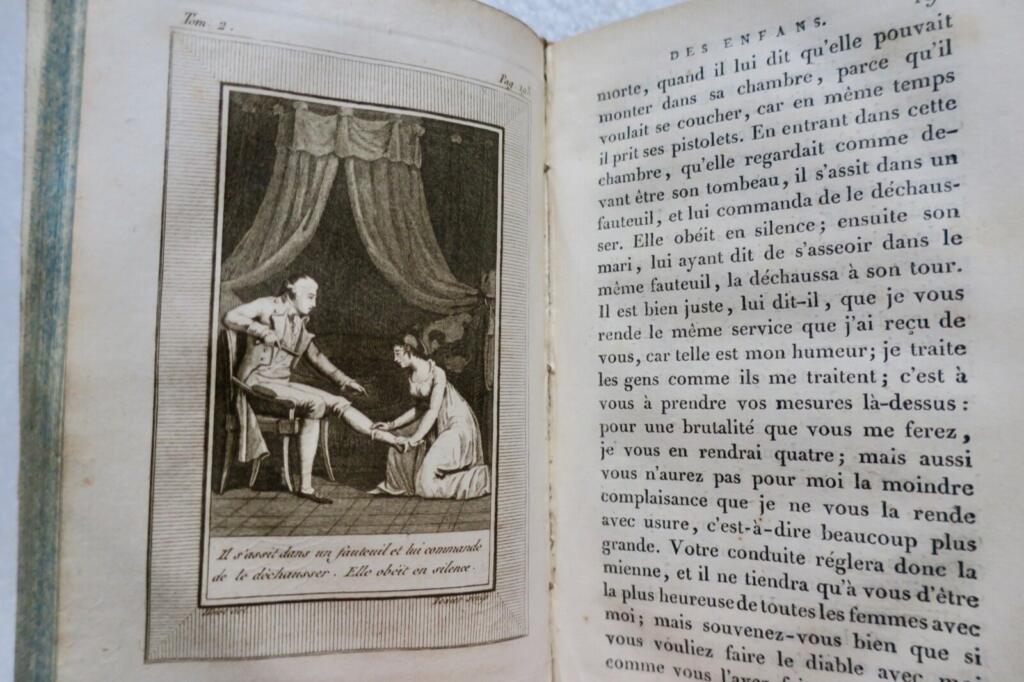 Tom. 2.
Pag. 193.
Il s'assit dans un fauteuil et lui commande
de le déchausser. Elle obéit en silence.
DES ENFANS.
morte, quand il lui dit qu'elle pouvait
monter dans sa chambre, parce qu'il
voulait se coucher, car en même temps
il prit ses pistolets. En entrant dans cette
chambre, qu'elle regardait comme de-
vant être son tombeau, il s'assit dans un
fauteuil, et lui commanda de le déchaus-
ser. Elle obéit en silence; ensuite son
mari, lui ayant dit de s'asseoir dans le
même fauteuil, la déchaussa à son tour.
Il est bien juste, lui dit-il, que je vous
rende le même service que j'ai reçu de
vous, car telle est mon humeur; je traite
les gens comme ils me traitent; c'est à
vous à prendre vos mesures là-dessus:
pour une brutalité que vous me ferez,
je vous en rendrai quatre; mais aussi
vous n'aurez pas pour moi la moindre
complaisance que je ne vous la rende
avec usure, c'est-à-dire beaucoup plus
grande. Votre conduite réglera donc la
mienne, et il ne tiendra qu'à vous d'être
la plus heureuse de toutes les femmes avec
moi; mais souvenez-vous bien que si
vous vouliez faire le diable avec moi
comme vous l'avez